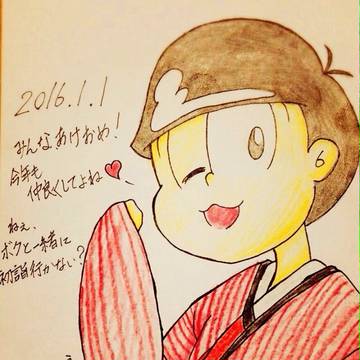 2016.1.1
みんなあけおめ!
今年も
仲良くしてよね
ねぇ、
ボクと一緒に
初詣行かない?